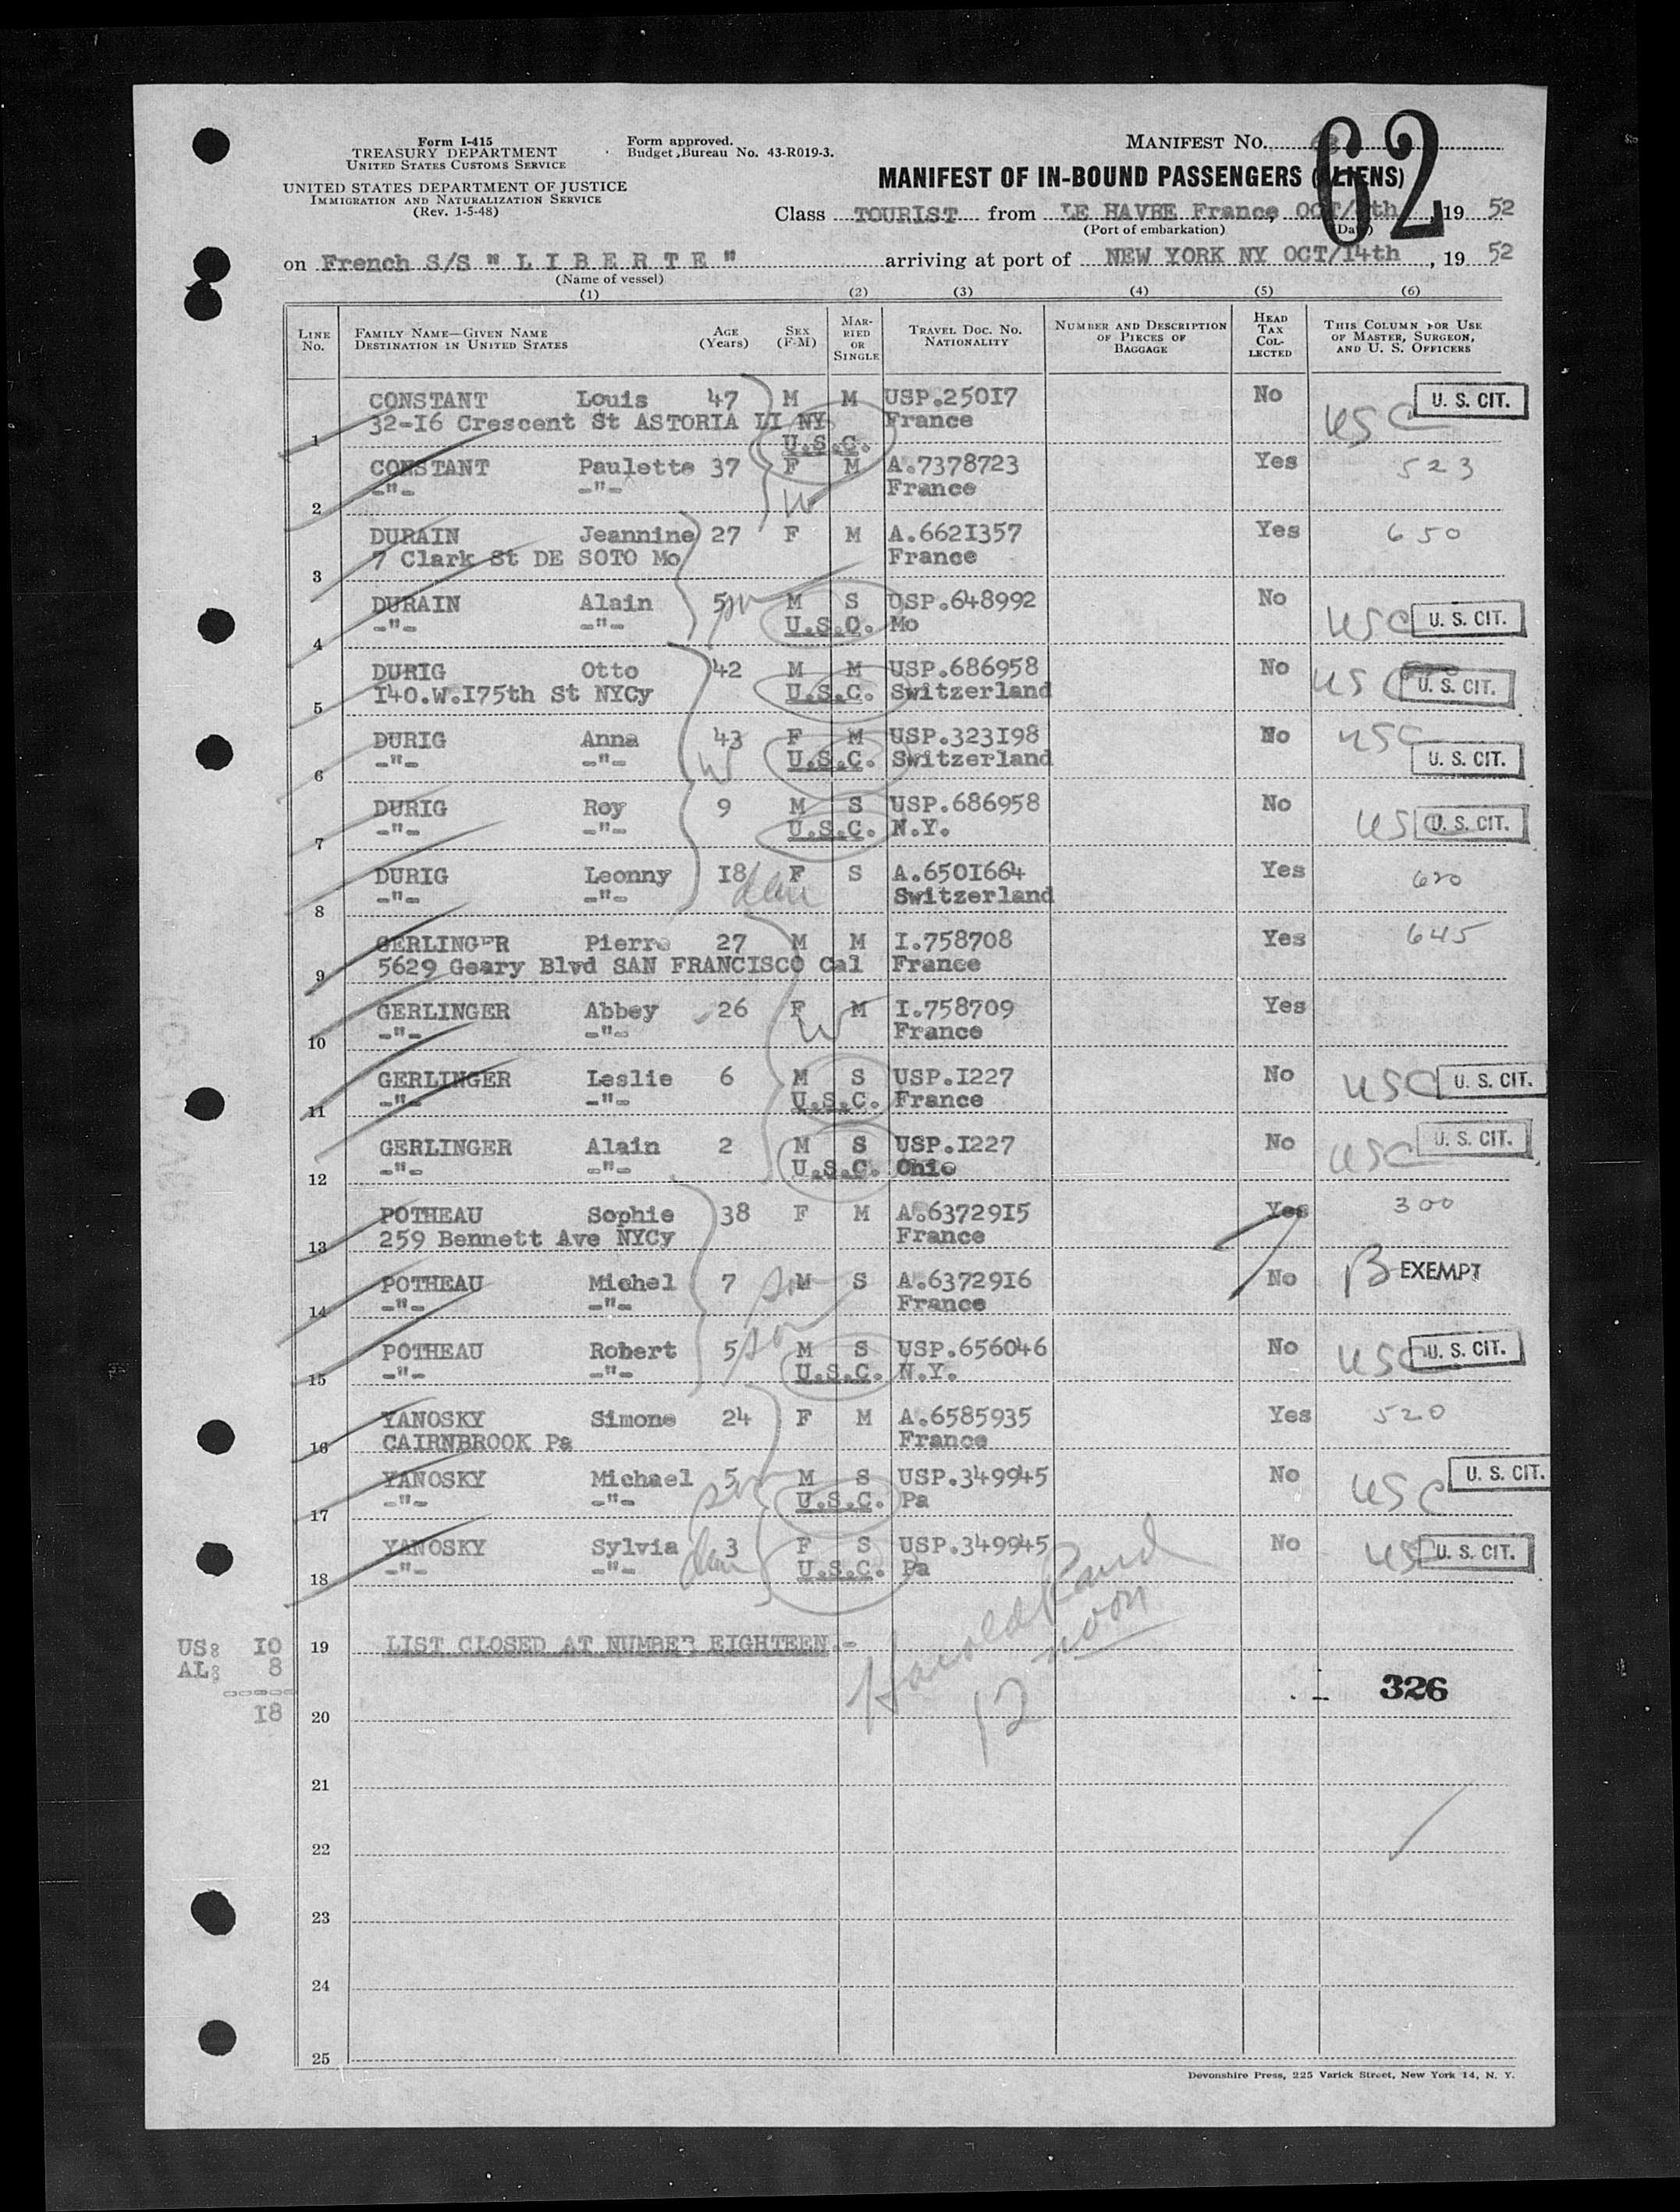 Form I-415
TREASURY DEPARTMENT
UNITED STATES CUSTOMS SERVICE
UNITED STATES DEPARTMENT OF JUSTICE
IMMIGRATION AND NATURALIZATION SERVICE
(Rev. 1-5-48)
Form approved.
Budget Bureau No. 43-R019-3.
MANIFEST No.
62
MANIFEST OF IN-BOUND PASSENGERS (ALIENS)
Class TOURIST from LE HAVRE France, OCT/ th, 19 52
(Port of embarkation) (Date)
on French S/S " L I B E R T E " arriving at port of NEW YORK NY OCT/14th, 19 52
(Name of vessel)
(1) (2) (3) (4) (5) (6)
LINE No. FAMILY NAME—GIVEN NAME DESTINATION IN UNITED STATES AGE (Years) SEX (F-M) MARRIED OR SINGLE TRAVEL DOC. NO. NATIONALITY NUMBER AND DESCRIPTION OF PIECES OF BAGGAGE HEAD TAX COLLECTED THIS COLUMN FOR USE OF MASTER, SURGEON, AND U. S. OFFICERS
CONSTANT Louis 47 M M USP.25017 No USC U. S. CIT.
1 32-16 Crescent St ASTORIA LI NY U.S.C. France
CONSTANT Paulette 37 F M A.7378723 Yes 523
2 -"- -"- W France
DURAIN Jeannine 27 F M A.6621357 Yes 650
3 7 Clark St DE SOTO Mo France
DURAIN Alain 5 M S USP.648992 No USC U. S. CIT.
4 -"- -"- U.S.C. Mo
DURIG Otto 42 M M USP.686958 No USC U. S. CIT.
5 140.W.175th St NYCy U.S.C. Switzerland
DURIG Anna 43 F M USP.323198 No USC U. S. CIT.
6 -"- -"- W U.S.C. Switzerland
DURIG Roy 9 M S USP.686958 No USC U. S. CIT.
7 -"- -"- U.S.C. N.Y.
DURIG Leonny 18 F S A.6501664 Yes 620
8 -"- -"- dau Switzerland
GERLINGER Pierre 27 M M I.758708 Yes 645
9 5629 Geary Blvd SAN FRANCISCO Cal France
GERLINGER Abbey 26 F M I.758709 Yes
10 -"- -"- W France
GERLINGER Leslie 6 M S USP.1227 No USC U. S. CIT.
11 -"- -"- U.S.C. France
GERLINGER Alain 2 M S USP.1227 No USC U. S. CIT.
12 -"- -"- U.S.C. Ohio
POTHEAU Sophie 38 F M A.6372915 Yes 300
13 259 Bennett Ave NYCy France
POTHEAU Michel 7 son M S A.6372916 No B EXEMPT
14 -"- -"- France
POTHEAU Robert 5 son M S USP.656046 No USC U. S. CIT.
15 -"- -"- U.S.C. N.Y.
YANOSKY Simone 24 F M A.6585935 Yes 520
16 CAIRNBROOK Pa France
YANOSKY Michael 5 son M S USP.349945 No USC U. S. CIT.
17 -"- -"- U.S.C. Pa
YANOSKY Sylvia 3 dau F S USP.349945 No USC U. S. CIT.
18 -"- -"- U.S.C. Pa
US: 10 19 LIST CLOSED AT NUMBER EIGHTEEN.-
AL: 8
-----
18
Harold
12 noon
326
20
21
22
23
24
25
Devonshire Press, 225 Varick Street, New York 14, N. Y.